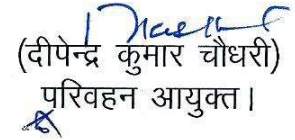 (दीपेन्द्र कुमार चौधरी)
परिवहन आयुक्त।